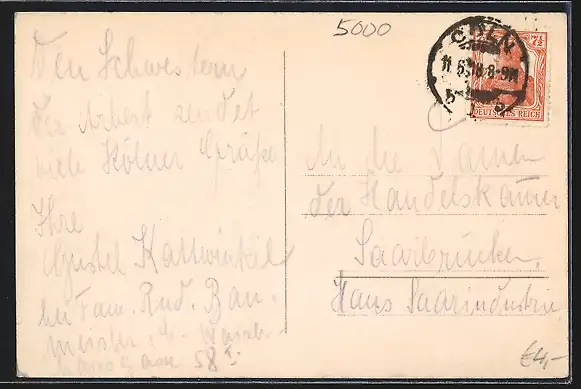 5000
CÖLN
11.6.18.8-9N
7½
DEUTSCHES REICH
Den Schwestern
der Arbeit sendet
viele Kölner Grüße
Ihre
Gustel Kattwinkel
bei Fam. Rud. Bau-
meister
58
An die Damen
der Handelskammer
Saarbrücken,
Haus Saarindustrie
€4,-